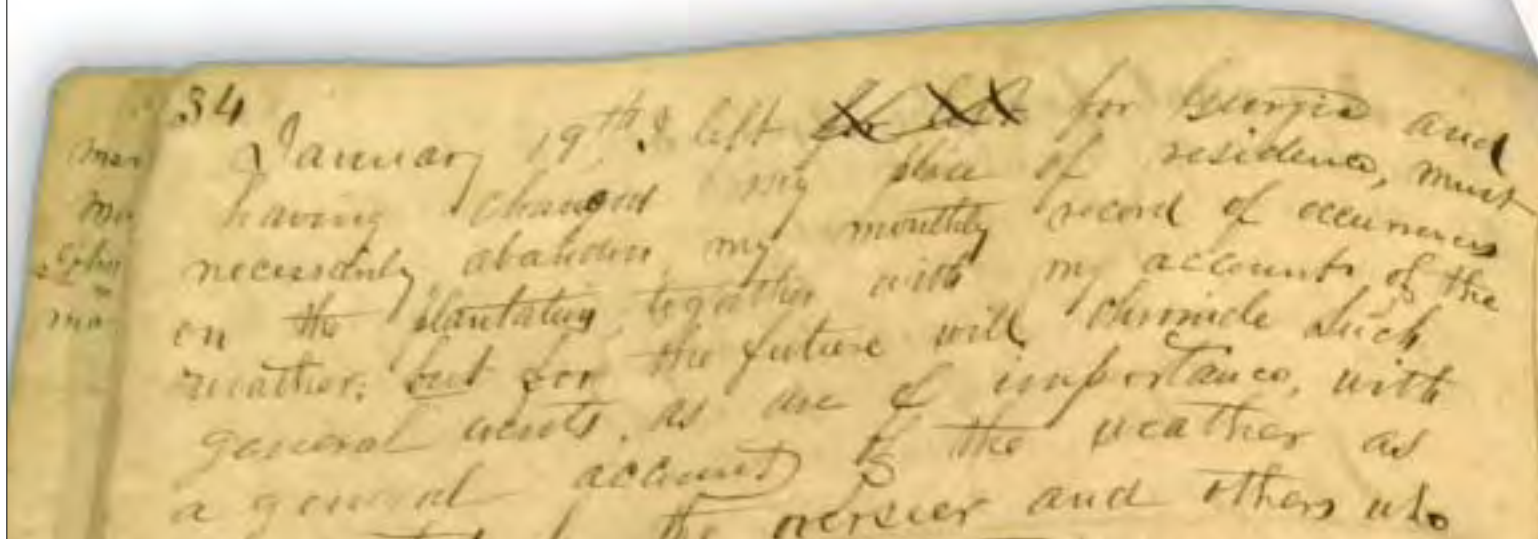 34
January 19th I left for Georgia and
having changed my place of residence, must
necessarily abandon my monthly record of occurrences
on the plantation, together with my accounts of the
weather; but for the future will chronicle such
general events, as are of importance, with
a general account of the weather as
the overseer and others who